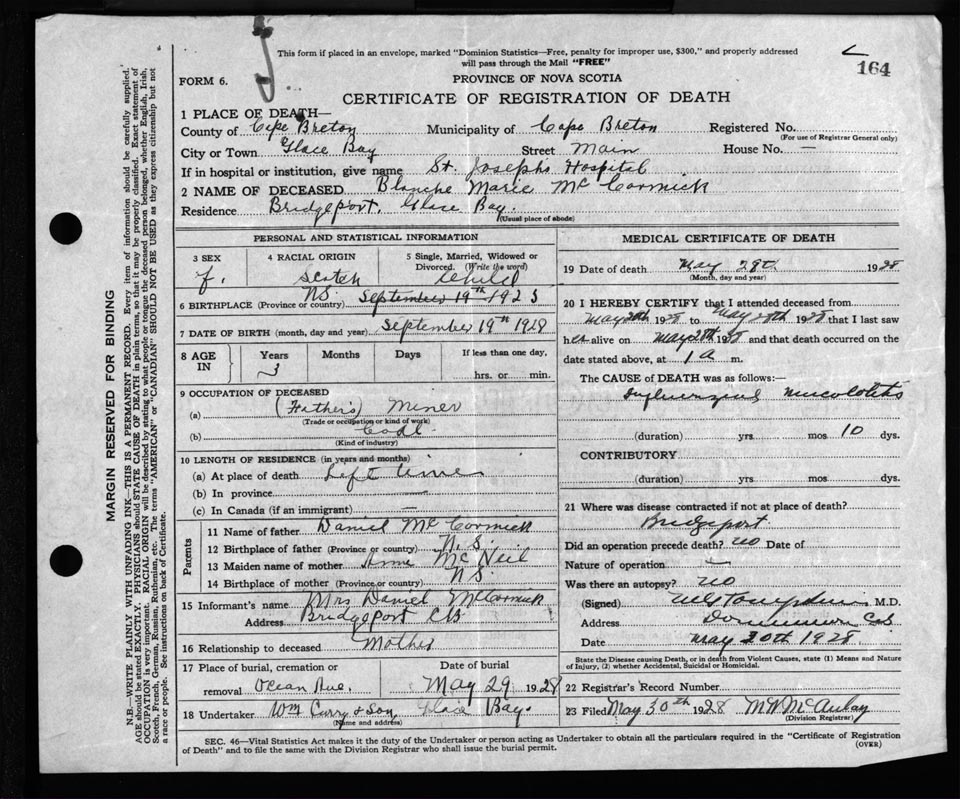 This form if placed in an envelope, marked "Dominion Statistics—Free, penalty for improper use, $300," and properly addressed
will pass through the Mail "FREE"
164
FORM 6.
PROVINCE OF NOVA SCOTIA
CERTIFICATE OF REGISTRATION OF DEATH
1 PLACE OF DEATH—
County of Cape Breton Municipality of Cape Breton Registered No.
(For use of Registrar General only)
City or Town Glace Bay Street Main House No. —
If in hospital or institution, give name St. Josephs Hospital
2 NAME OF DECEASED Blanche Marie McCormick
Residence Bridgeport, Glace Bay.
(Usual place of abode)
PERSONAL AND STATISTICAL INFORMATION
3 SEX 4 RACIAL ORIGIN 5 Single, Married, Widowed or
Divorced. (Write the word)
f. Scotch Child
6 BIRTHPLACE (Province or country) N.S. September 19th 1925
7 DATE OF BIRTH (month, day and year) September 19th 1928
8 AGE IN Years Months Days If less than one day,
3 hrs. or min.
9 OCCUPATION OF DECEASED
(a) (Father's) Miner
(Trade or occupation or kind of work)
(b) Coal
(Kind of industry)
10 LENGTH OF RESIDENCE (in years and months)
(a) At place of death Left time
(b) In province —
(c) In Canada (if an immigrant) —
Parents
11 Name of father Daniel McCormick
12 Birthplace of father (Province or country) N.S.
13 Maiden name of mother Anne McNeil
14 Birthplace of mother (Province or country) N.S.
15 Informant's name Mrs Daniel McCormick
Address Bridgeport CB
16 Relationship to deceased Mother
17 Place of burial, cremation or Date of burial
removal Ocean Ave. May 29 1928
18 Undertaker Wm Curry & Son, Glace Bay.
(Name and address)
MEDICAL CERTIFICATE OF DEATH
19 Date of death May 28th 1928
(Month, day and year)
20 I HEREBY CERTIFY that I attended deceased from
May 1928 to May 28th 1928 that I last saw
her alive on May 28th 1928 and that death occurred on the
date stated above, at 1 a m.
The CAUSE OF DEATH was as follows:—
(duration) yrs. mos 10 dys.
CONTRIBUTORY
(duration) yrs. mos dys.
21 Where was disease contracted if not at place of death?
Bridgeport.
Did an operation precede death? no Date of
Nature of operation —
Was there an autopsy? no
(Signed) M.D.
Address Dominion C.B
Date May 30th 1928
State the Disease causing Death, or in death from Violent Causes, state (1) Means and Nature
of Injury, (2) whether Accidental, Suicidal or Homicidal.
22 Registrar's Record Number
23 Filed May 30th 1928 M. McAulay
(Division Registrar)
SEC. 46—Vital Statistics Act makes it the duty of the Undertaker or person acting as Undertaker to obtain all the particulars required in the "Certificate of Registration
of Death" and to file the same with the Division Registrar who shall issue the burial permit.
(OVER)
MARGIN RESERVED FOR BINDING
N.B.—WRITE PLAINLY WITH UNFADING INK—THIS IS A PERMANENT RECORD. Every item of information should be carefully supplied.
AGE should be stated EXACTLY. PHYSICIANS should STATE CAUSE OF DEATH in plain terms, so that it may be properly classified. Exact statement of
OCCUPATION is very important. RACIAL ORIGIN will be described by stating to what people or tongue the deceased person belonged, whether English, Irish,
Scotch, French, German, Russian, Ruthenian, etc. The terms "AMERICAN" or "CANADIAN" SHOULD NOT BE USED as they express citizenship but not
a race or people. See instructions on back of Certificate.